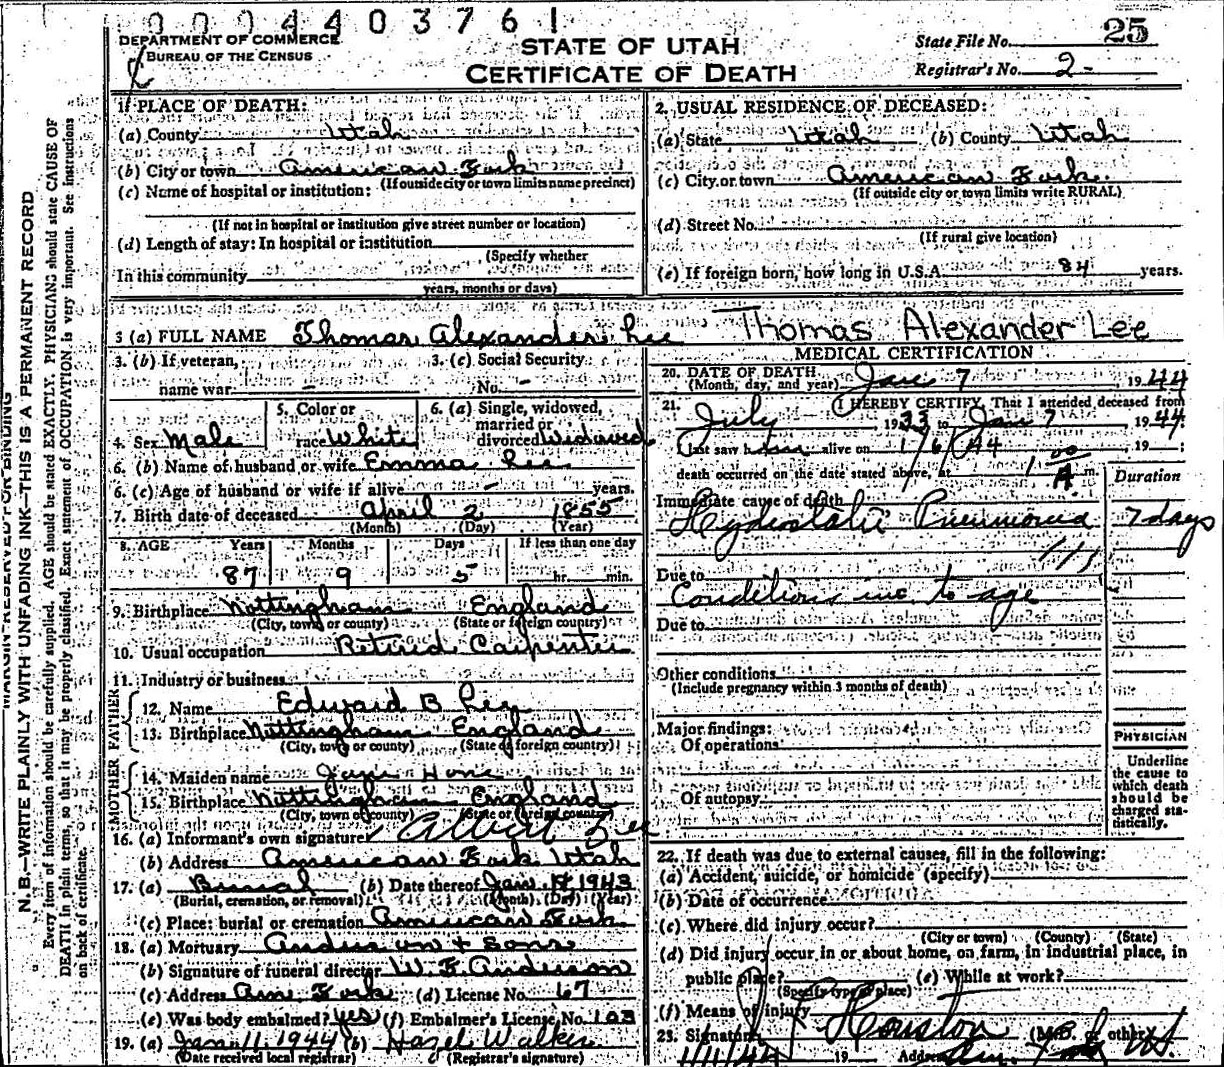 0004403761
DEPARTMENT OF COMMERCE
BUREAU OF THE CENSUS
STATE OF UTAH
CERTIFICATE OF DEATH
State File No. 25
Registrar's No. 2-
MARGIN RESERVED FOR BINDING
N.B.—WRITE PLAINLY WITH UNFADING INK—THIS IS A PERMANENT RECORD
Every item of information should be carefully supplied. AGE should be stated EXACTLY. PHYSICIANS should state CAUSE OF
DEATH in plain terms, so that it may be properly classified. Exact statement of OCCUPATION is very important. See instructions
on back of certificate.
1. PLACE OF DEATH:
(a) County Utah
(b) City or town American Fork
(If outside city or town limits name precinct)
(c) Name of hospital or institution:
(If not in hospital or institution give street number or location)
(d) Length of stay: In hospital or institution
(Specify whether
In this community
years, months or days)
2. USUAL RESIDENCE OF DECEASED:
(a) State Utah (b) County Utah
(c) City or town American Fork
(If outside city or town limits write RURAL)
(d) Street No.
(If rural give location)
(e) If foreign born, how long in U.S.A. 84 years.
3 (a) FULL NAME Thomas Alexander Lee Thomas Alexander Lee
3. (b) If veteran,
name war –
3. (c) Social Security
No. –
4. Sex Male
5. Color or
race White
6. (a) Single, widowed,
married or
divorced Widowed
6. (b) Name of husband or wife Emma Lee
6. (c) Age of husband or wife if alive – years.
7. Birth date of deceased April 2 1855
(Month) (Day) (Year)
8. AGE Years Months Days If less than one day
87 9 5 hr. min.
9. Birthplace Nottingham England
(City, town or county) (State or foreign country)
10. Usual occupation Retired Carpenter
11. Industry or business
FATHER
12. Name Edward B Lee
13. Birthplace Nottingham England
(City, town or county) (State of foreign country)
MOTHER
14. Maiden name Jane Hone
15. Birthplace Nottingham England
(City, town or county) (State or foreign country)
16. (a) Informant's own signature Albert Lee
(b) Address American Fork Utah
17. (a) Burial (b) Date thereof Jan. 1943
(Burial, cremation, or removal) (Month) (Day) (Year)
(c) Place: burial or cremation American Fork
18. (a) Mortuary Anderson + Sons
(b) Signature of funeral director W. F. Anderson
(c) Address Am. Fork (d) License No. 67
(e) Was body embalmed? yes (f) Embalmer's License No. 103
19. (a) Jan 11 1944 (b) Hazel Walker
(Date received local registrar) (Registrar's signature)
MEDICAL CERTIFICATION
20. DATE OF DEATH
(Month, day, and year) Jan 7, 1944
21. I HEREBY CERTIFY, That I attended deceased from
July 1933 to Jan 7 1944
last saw him alive on 1/6/44 19 ;
death occurred on the date stated above, at 1 00 A m.
Duration
Immediate cause of death
Hydrostatic Pneumonia 7 days
Due to
Conditions inc to age
Due to
Other conditions
(Include pregnancy within 3 months of death)
Major findings:
Of operations
Of autopsy
PHYSICIAN
Underline
the cause to
which death
should be
charged sta-
tistically.
22. If death was due to external causes, fill in the following:
(a) Accident, suicide, or homicide (specify)
(b) Date of occurrence
(c) Where did injury occur?
(City or town) (County) (State)
(d) Did injury occur in or about home, on farm, in industrial place, in
public place? (e) While at work?
(Specify type of place)
(f) Means of injury
23. Signature Houston (M.D. or other)
1/11/44 19 Address Am. Fork